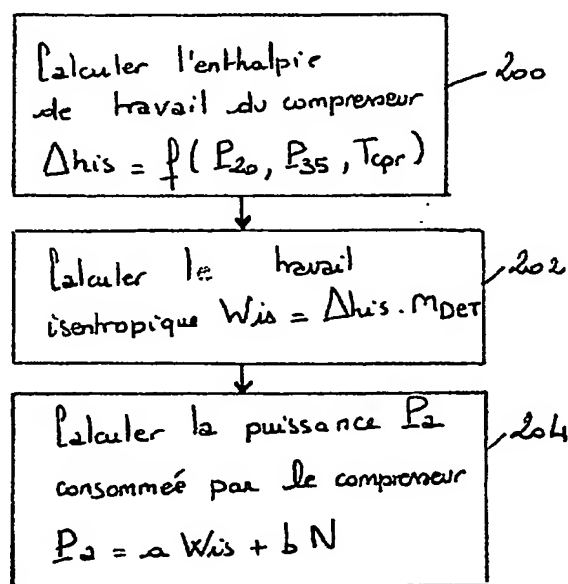 Calculer l'enthalpie
de travail du compresseur
Δhis = f(P20, P35, Tcpr)
200
Calculer le travail
isentropique Wis = Δhis . mDET
202
Calculer la puissance Pa
consommée par le compresseur
Pa = a Wis + b N
204